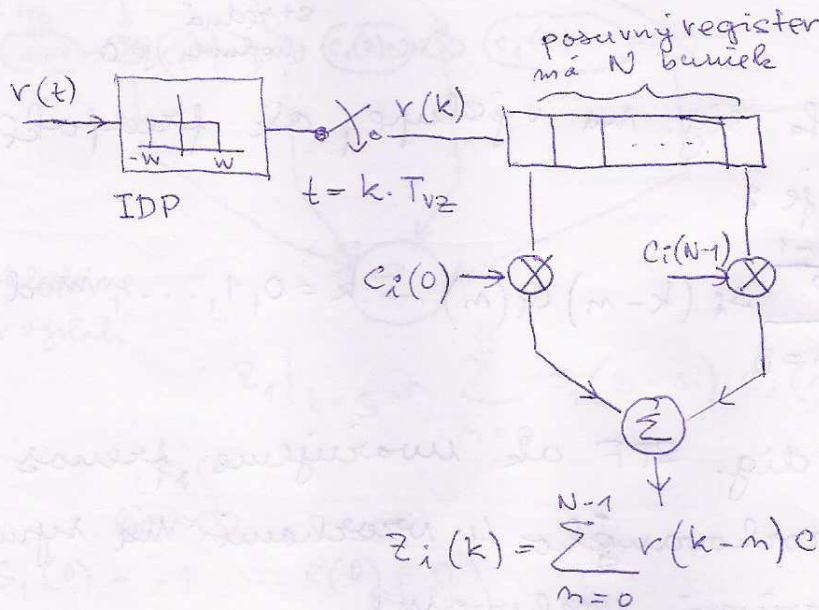 posuvný register
má N buniek
r(t)
r(k)
-W W
IDP
t = k · T_vz
. . .
C_i(0)
C_i(N-1)
Σ
z_i(k) = \sum_{n=0}^{N-1} r(k-n) c